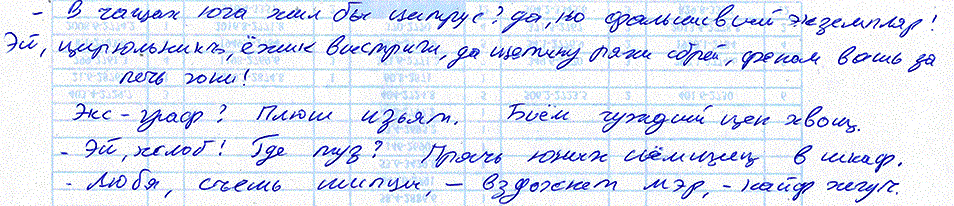 - В чащах юга жил бы цитрус? да, но фальшивый экземпляр!
Эй, цирюльникъ, ёжик выстриги, да щетину ряхи сбрей, феном вошь за
печь гони!
Экс-граф? Плюш изъят. Бьём чуждый цен хвощ.
- Эй, жлоб! Где туз? Прячь юных съёмщиц в шкаф.
- Любя, съешь щипцы, - вздохнёт мэр, - кайф жгуч.